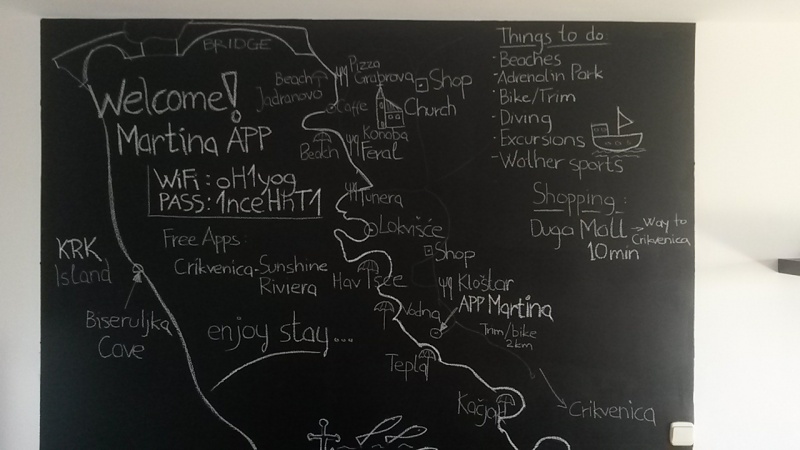 BRIDGE
Welcome!
Martina APP
WiFi : oH1yog
PASS: 1nceHhT1
Free Apps:
Crikvenica-Sunshine
Riviera
enjoy stay...
KRK
Island
Biserujka
Cave
Beach
Jadranovo
Pizza
Grabrova
Shop
Caffe
Church
Beach
Konoba
Feral
Tunera
Lokvišće
Shop
Havišće
Kloštar
APP Martina
Vodna
Trim/bike
2km
Tepla
Kačjak
Crikvenica
Things to do:
· Beaches
· Adrenalin Park
· Bike/Trim
· Diving
· Excursions
· Wother sports
Shopping:
Duga Mall → Way to
Crikvenica
10min